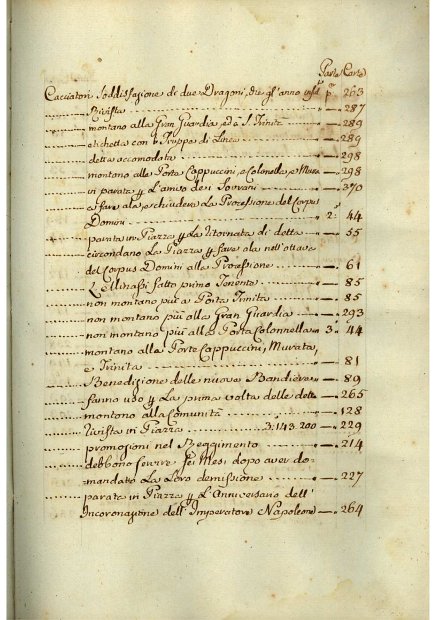 Parte Carte
Cacciatori Soddisfazione de due Dragoni, che gl'anno p.ª 263
Rivista 287
montano alla Gran Guardia, ed a S. Trinità 289
etichetta con la Truppa di Linea 289
detta accomodata 298
montano alle Porte Cappuccini, a Colonella e Mura 298
in parata p l'arrivo de Sovrani 370
a fare ala, e schiudere la Processione del Corpus
Domini 2.ª 44
parata in Piazza p La ritornata di detta 55
circondano La Piazza p fare ala nell'ottava
del Corpus Domini alla Processione 61
fatto primo Tenente 85
non montano più a Porta Trinità 85
non montano più alla Gran Guardia 293
non montano più alla Porta Colonnella 3. 44
montano alla Porte Cappuccini, Murata,
e Trinita 81
Benedizione delle nuove Bandiere 89
fanno uso p La prima volta delle dette 265
montono alla Comunità 128
Rivista in Piazza 3: 143. 200 229
promozioni nel Reggimento 214
debbono servire sei Mesi dopo aver do-
mandato La Loro demissione 227
parata in Piazza p L'Anniversario dell'
Incoronazione dell'Imperatore Napoleone 264